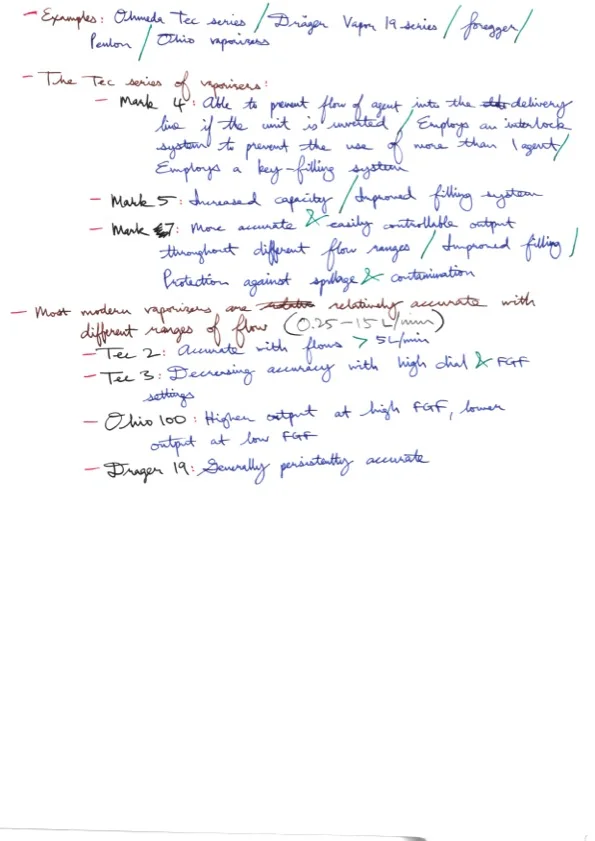 - Examples: Ohmeda Tec series / Dräger Vapor 19 series / foregger /
Penlon / Ohio vaporizers
- The Tec series of vaporisers:
- Mark 4: Able to prevent flow of agent into the delivery
line if the unit is inverted / Employs an interlock
system to prevent the use of more than 1 agent /
Employs a key-filling system
- Mark 5: Increased capacity / Improved filling system
- Mark 7: More accurate & easily controllable output
throughout different flow ranges / Improved filling /
Protection against spillage & contamination
- Most modern vaporizers are relatively accurate with
different ranges of flow (0.25-15 L/min)
- Tec 2: Accurate with flows > 5L/min
- Tec 3: Decreasing accuracy with high dial & FGF
settings
- Ohio 100: Higher output at high FGF, lower
output at low FGF
- Drager 19: Generally persistently accurate